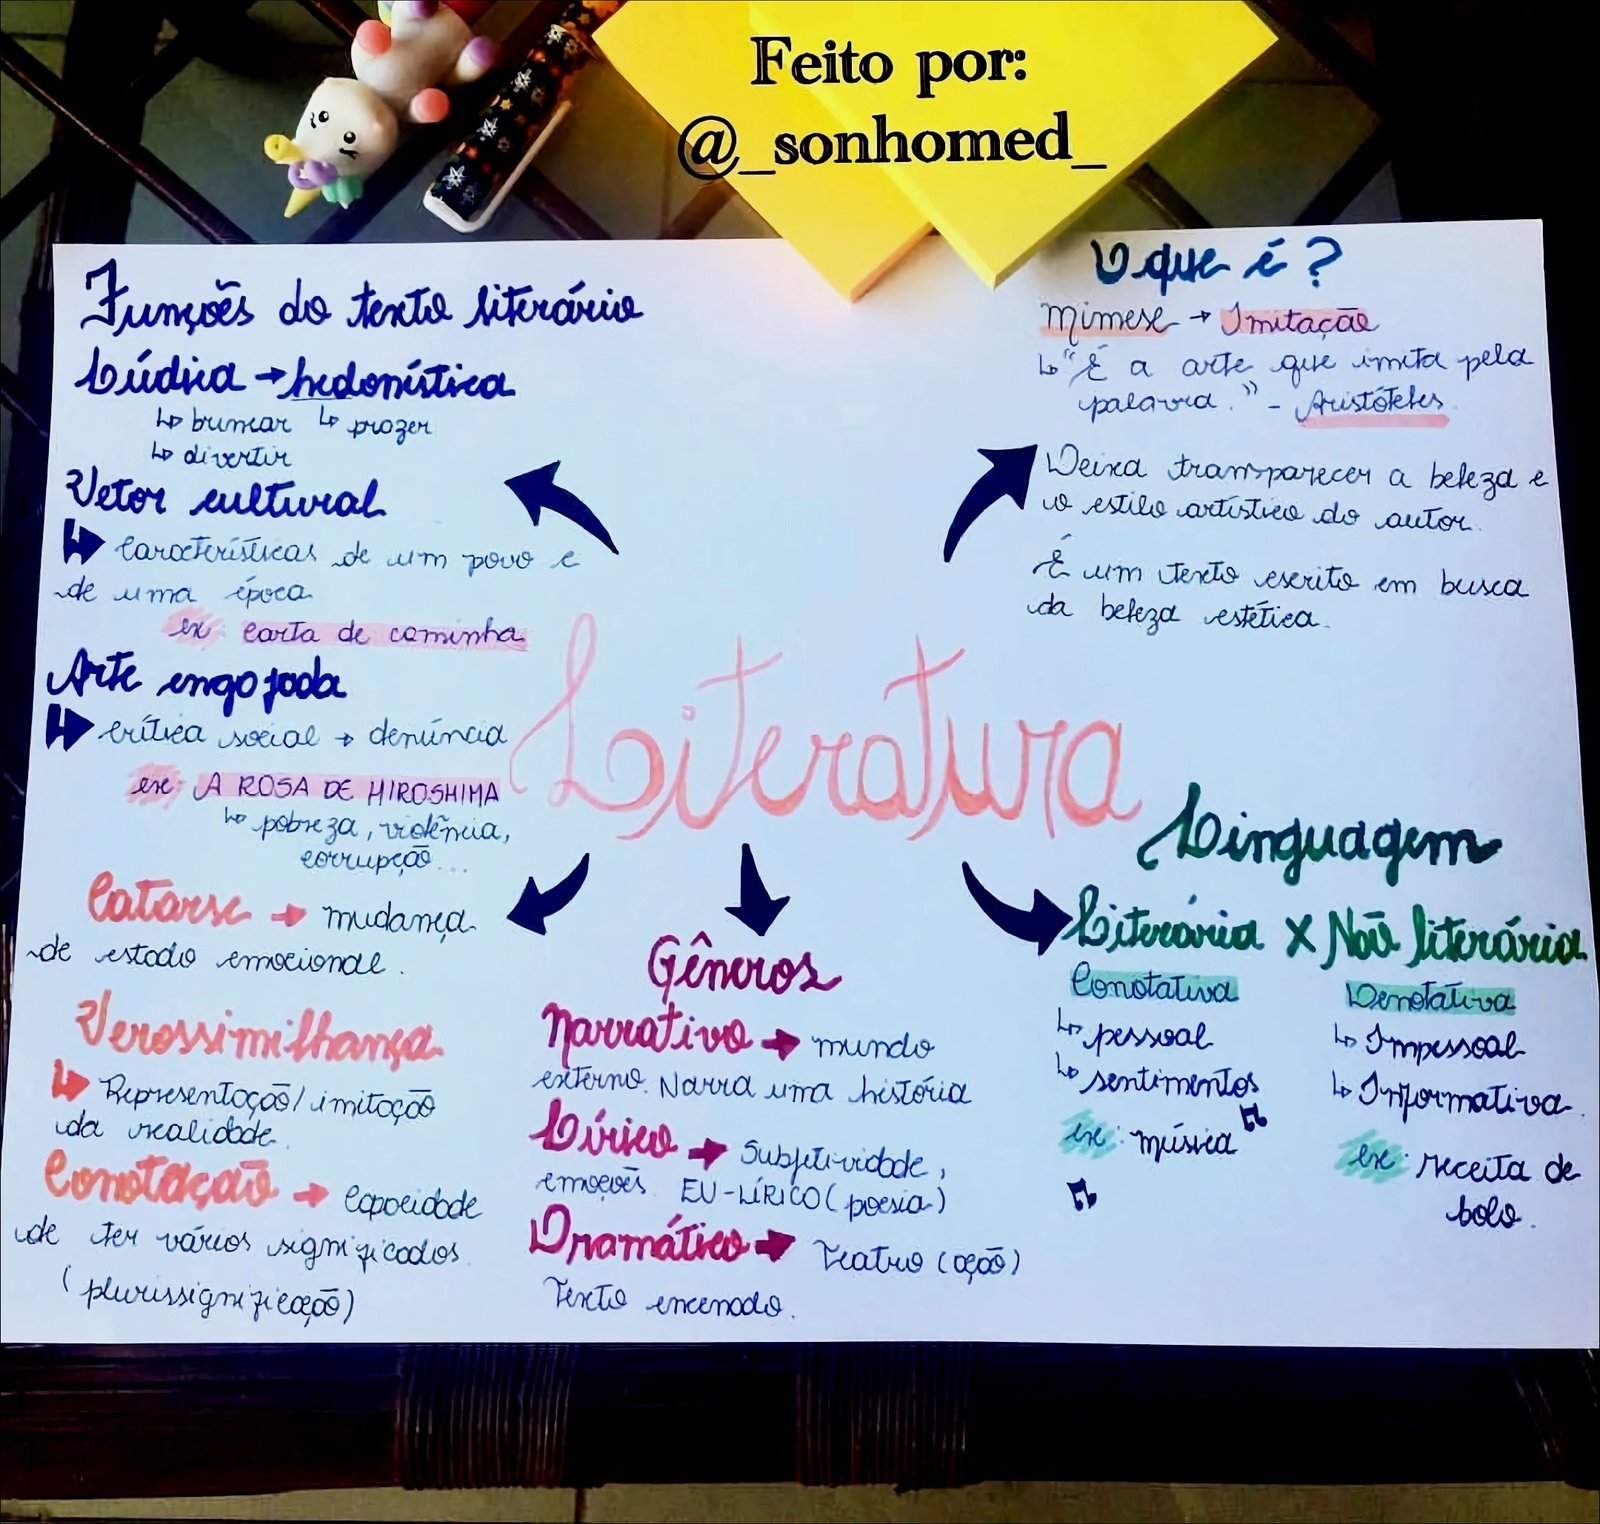 Feito por:
@_sonhomed_
Funções do texto literário
Lúdica → hedonística
↳ brincar ↳ prazer
↳ divertir
Vetor cultural
↳ Características de um povo e
de uma época
ex: Carta de caminha
Arte engajada
↳ Crítica social → denúncia
ex: A ROSA DE HIROSHIMA
↳ pobreza, violência,
corrupção...
Catarse → mudança
de estado emocional.
Verossimilhança
↳ Representação/imitação
da realidade.
Conotação → Capacidade
de ter vários significados.
(plurissignificação)
Literatura
O que é?
Mimese → Imitação
↳ "É a arte que imita pela
palavra." - Aristóteles
Deixa transparecer a beleza e
o estilo artístico do autor.
É um texto escrito em busca
da beleza estética.
Gêneros
Narrativo → mundo
externo. Narra uma história
Lírico → Subjetividade,
emoções. EU-LÍRICO (poesia)
Dramático → Teatro (ação)
Texto encenado.
Linguagem
Literária X Não literária
Conotativa
↳ pessoal
↳ sentimentos
ex: música
Denotativa
↳ Impessoal
↳ Informativa.
ex: receita de
bolo.